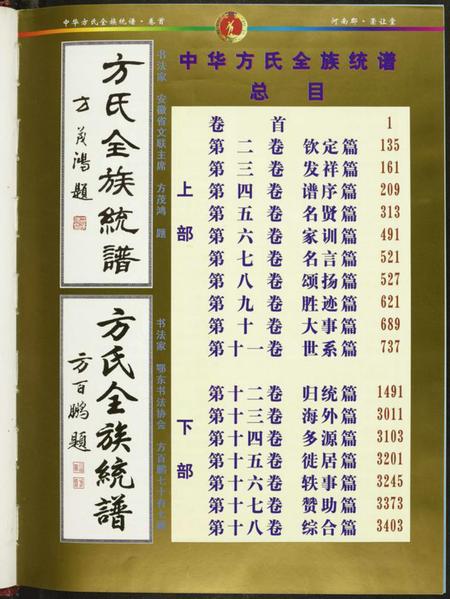 中华方氏全族统谱·卷首
河南郡·墨让堂
中华方氏全族统谱
总目
上部
卷首 1
第二卷 钦定篇 135
第三卷 发祥篇 161
第四卷 谱序篇 209
第五卷 名贤篇 313
第六卷 家训篇 491
第七卷 名言篇 521
第八卷 颂扬篇 527
第九卷 胜迹篇 621
第十卷 大事篇 689
第十一卷 世系篇 737
下部
第十二卷 归统篇 1491
第十三卷 海外篇 3011
第十四卷 多源篇 3103
第十五卷 徙居篇 3201
第十六卷 轶事篇 3245
第十七卷 赞助篇 3373
第十八卷 综合篇 3403
书法家 安徽省文联主席 方茂鸿 题
方氏全族統譜
方茂鴻題
书法家 鄂东书法协会 方百鹏七十有七
方氏全族統譜
方百鵬題